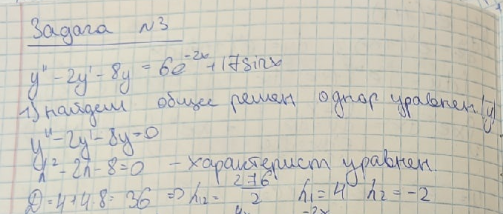 Задача №3
y'' - 2y' - 8y = 6e^{-2x} + 17sin x
1) найдем общее решен однор уравнен (y)
y'' - 2y' - 8y = 0
k² - 2k - 8 = 0 - характерист уравнен.
D = 4 + 4·8 = 36 => k₁,₂ = (2±6)/2 k₁ = 4 k₂ = -2